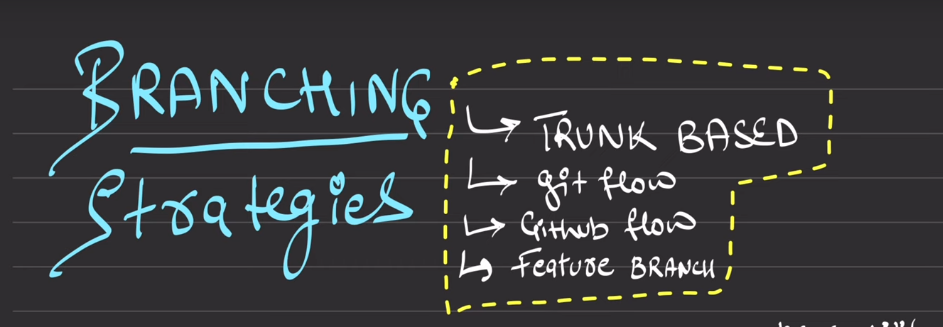 BRANCHING
Strategies
TRUNK BASED
git flow
Github flow
Feature BRANCH